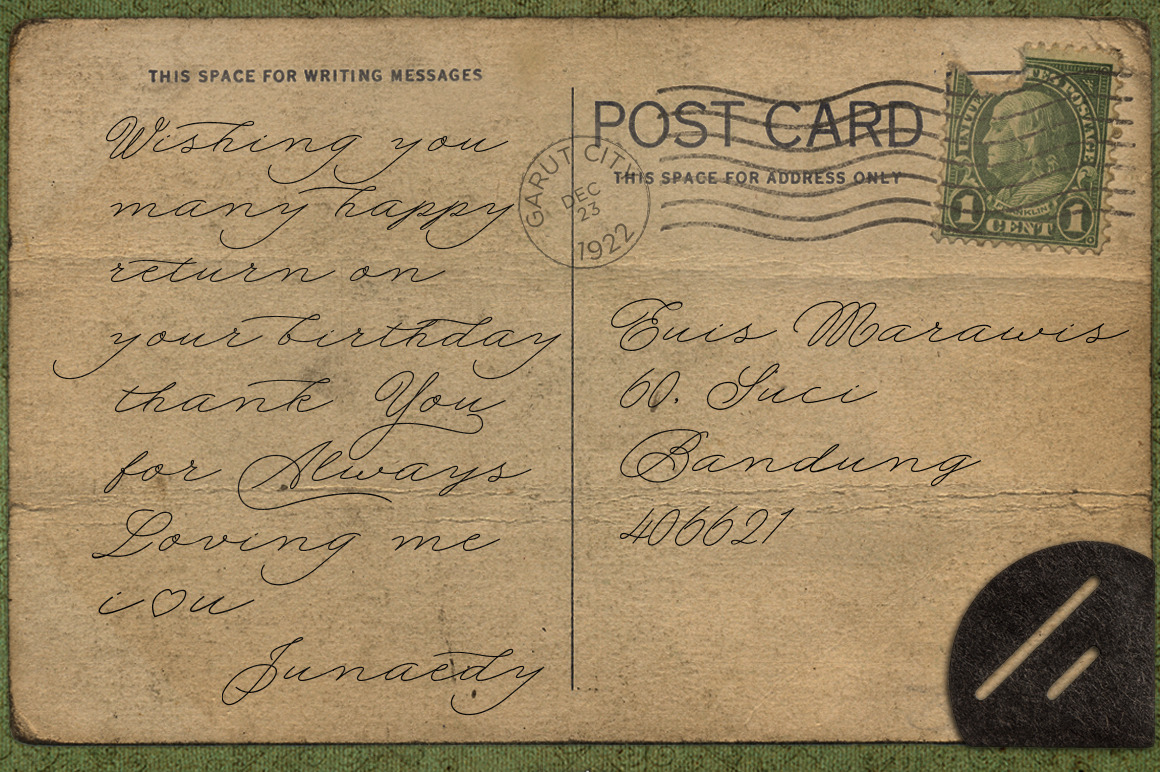 THIS SPACE FOR WRITING MESSAGES
Wishing you
many happy
return on
your birthday
thank You
for Always
Loving me
i♡u
Junaedy
POST CARD
THIS SPACE FOR ADDRESS ONLY
GARUT CITY
DEC
23
1922
UNITED STATES POSTAGE
FRANKLIN
1 CENT 1
Euis Marawis
60. Suci
Bandung
406621